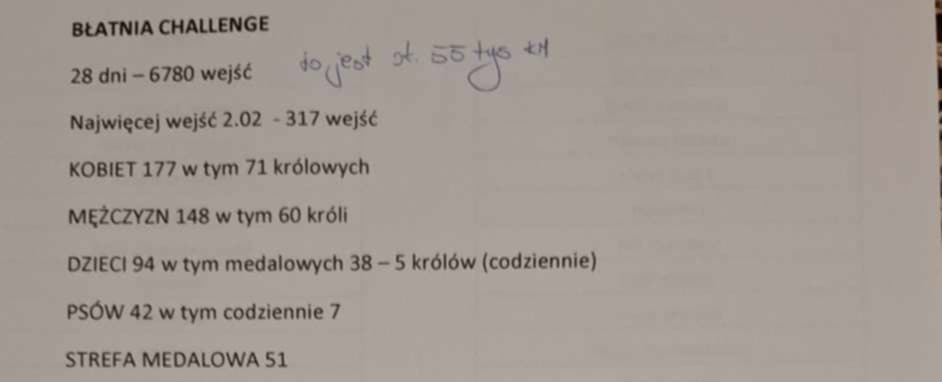 BŁATNIA CHALLENGE
28 dni – 6780 wejść to jest ok. 55 tys km
Najwięcej wejść 2.02 - 317 wejść
KOBIET 177 w tym 71 królowych
MĘŻCZYZN 148 w tym 60 króli
DZIECI 94 w tym medalowych 38 – 5 królów (codziennie)
PSÓW 42 w tym codziennie 7
STREFA MEDALOWA 51